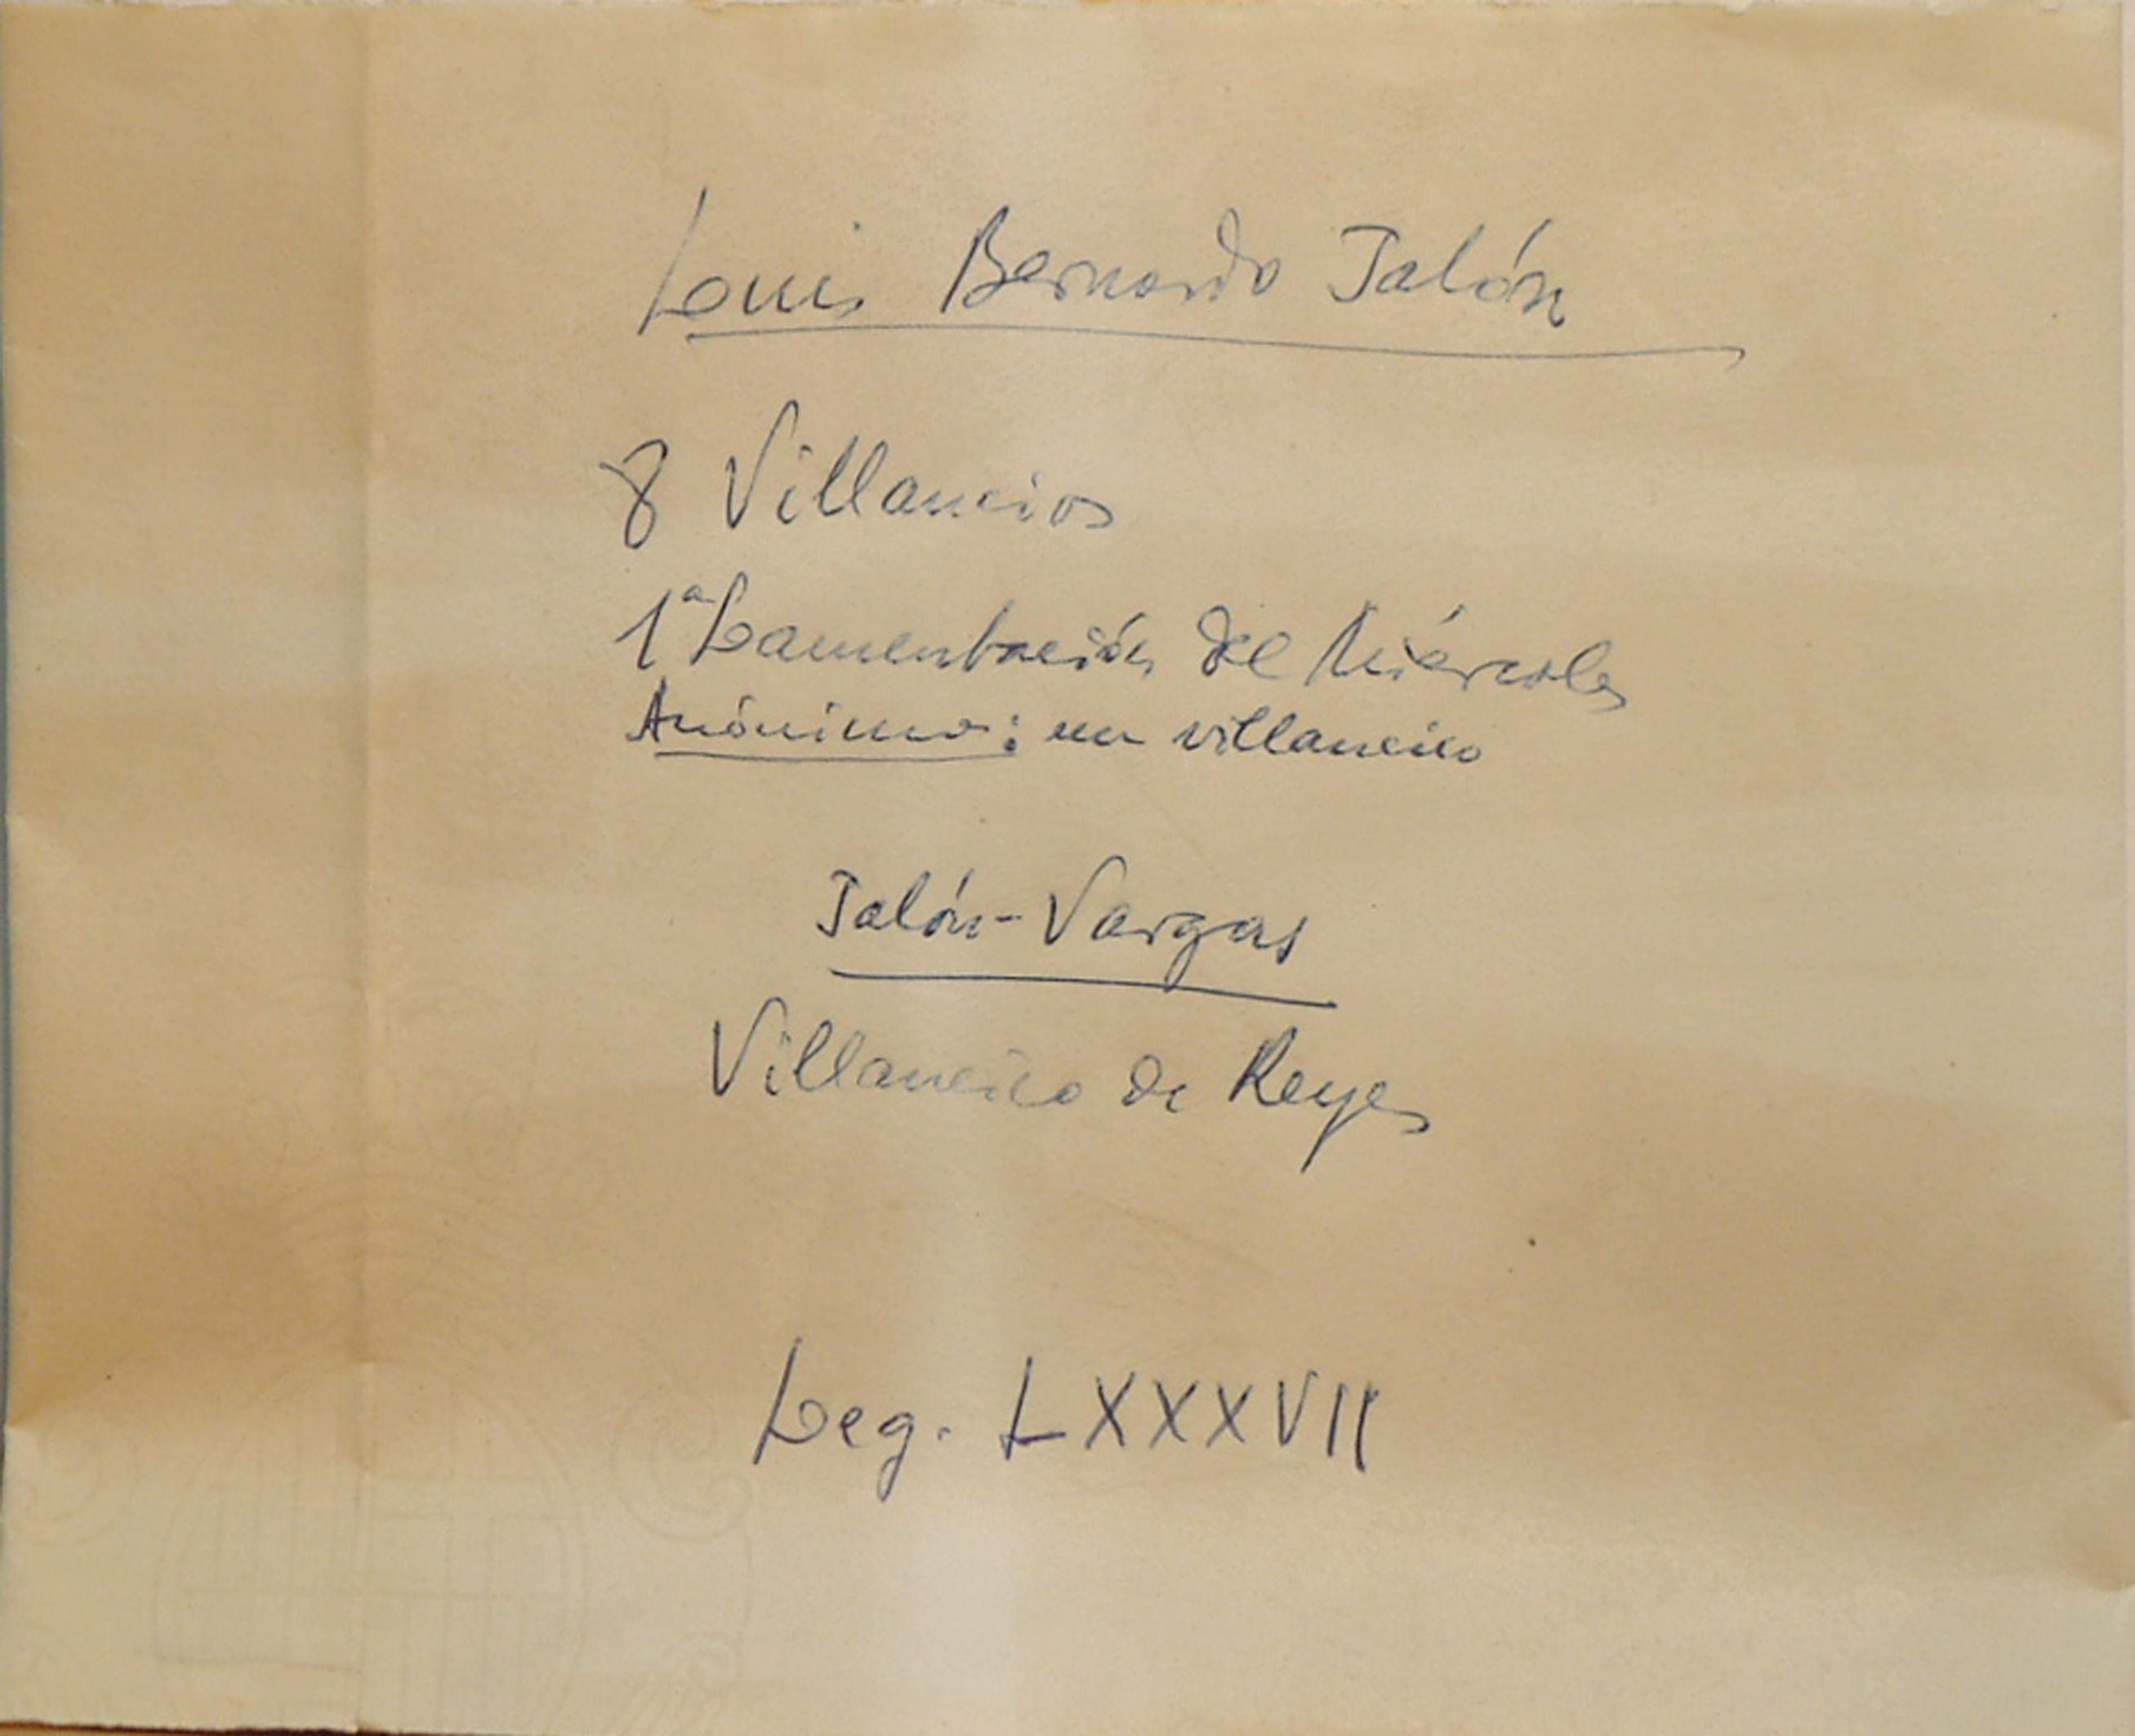 Louis Bernardo Jalón
8 Villancios
1ª Lamentación del Miércoles
Anónimo: un villancico
Jalón-Vargas
Villancico de Reyes
Leg. LXXXVII